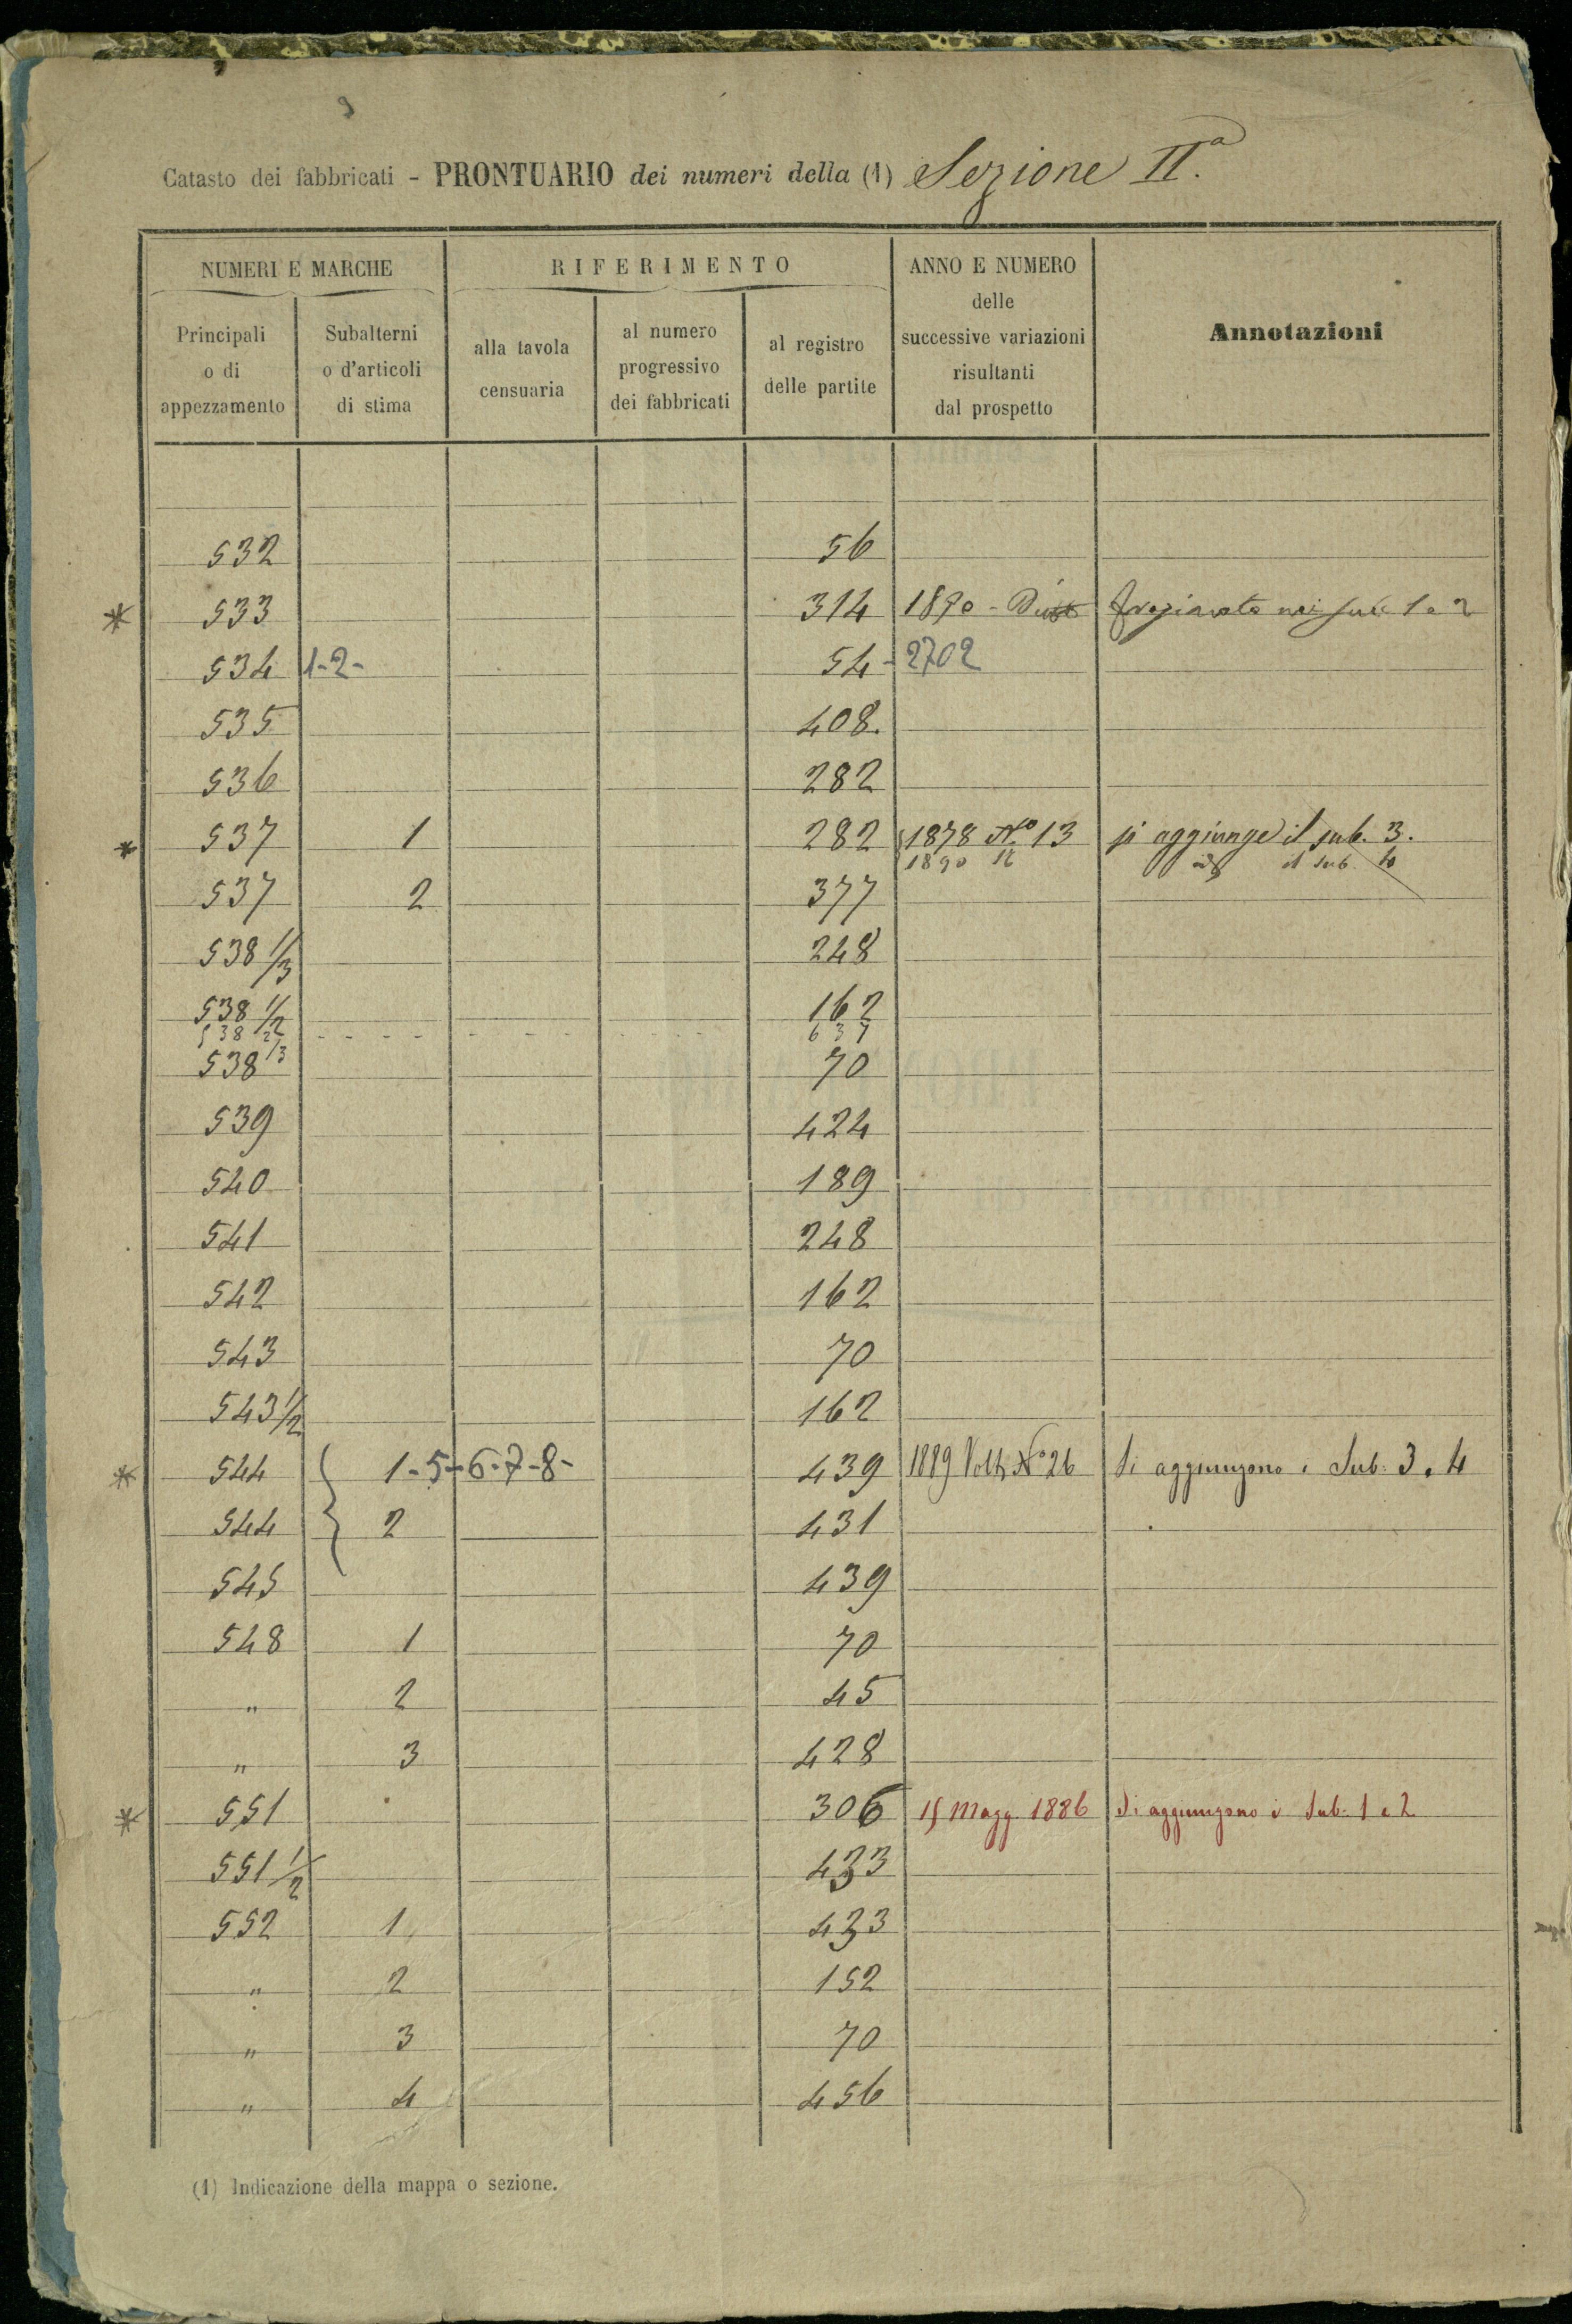 9
Catasto dei fabbricati - PRONTUARIO dei numeri della (1) Sezione IIª.
NUMERI E MARCHE
RIFERIMENTO
ANNO E NUMERO delle successive variazioni risultanti dal prospetto
Annotazioni
Principali o di appezzamento
Subalterni o d'articoli di stima
alla tavola censuaria
al numero progressivo dei fabbricati
al registro delle partite
532 56
* 533 314 1890 - nei sub 1 e 2
534 1-2- 54 - 2702
535 408.
536 282
* 537 1 282 1878 Nº 13 si aggiunge il sub. 3.
1890 il sub.
537 2 377
538 1/3 248
538 1/2 162
538 637
538 1/3 70
539 424
540 189
541 248
542 162
543 70
543 1/2 162
* 544 1-5-6-7-8- 439 1889 Nº 26 Si aggiungono i Sub. 3 e 4
544 2 431
545 439
548 1 70
" 2 45
" 3 428
* 551 306 15 Magg 1886 Si aggiungono i Sub. 1 e 2
551 1/2 433
552 1 433
" 2 152
" 3 70
" 4 456
(1) Indicazione della mappa o sezione.